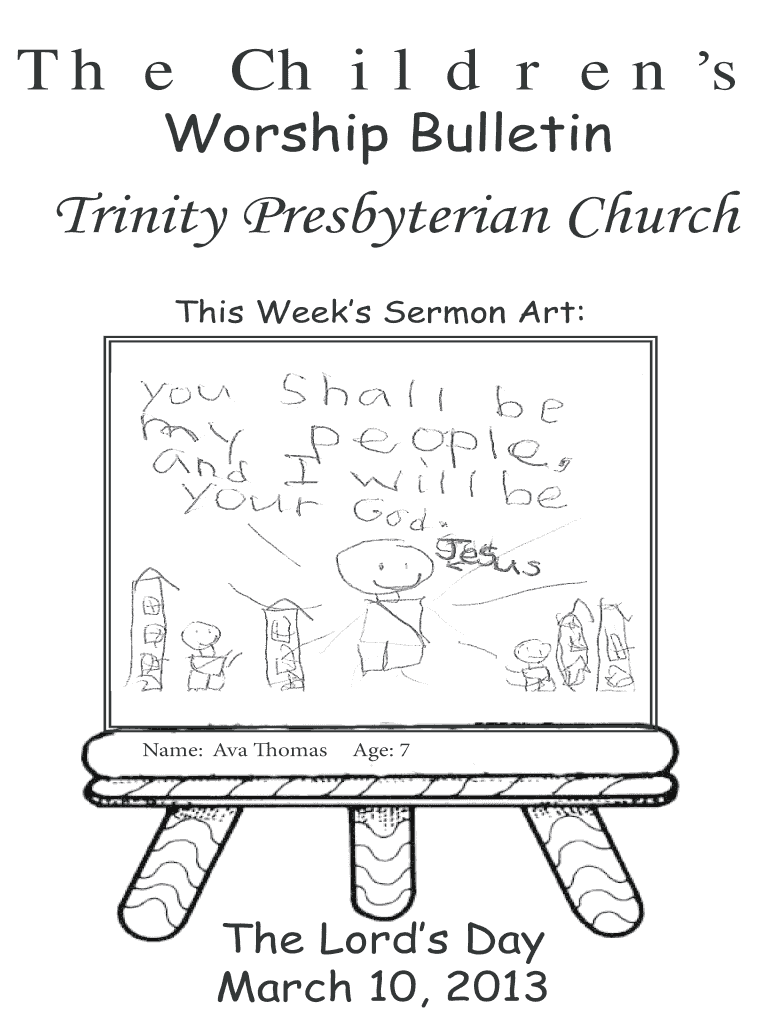 The Children's
Worship Bulletin
Trinity Presbyterian Church
This Week's Sermon Art:
you Shall be
my people,
and I will be
your God.
Jesus
Name: Ava Thomas Age: 7
The Lord's Day
March 10, 2013